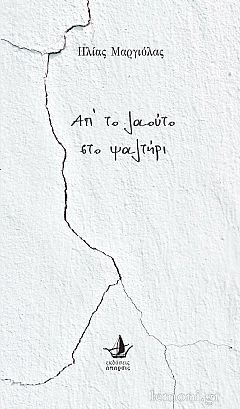 Ηλίας Μαργιόλας
Απ' το λαούτο
στο ψαλτήρι
εκδόσεις
απαρσις
lemoni.gr